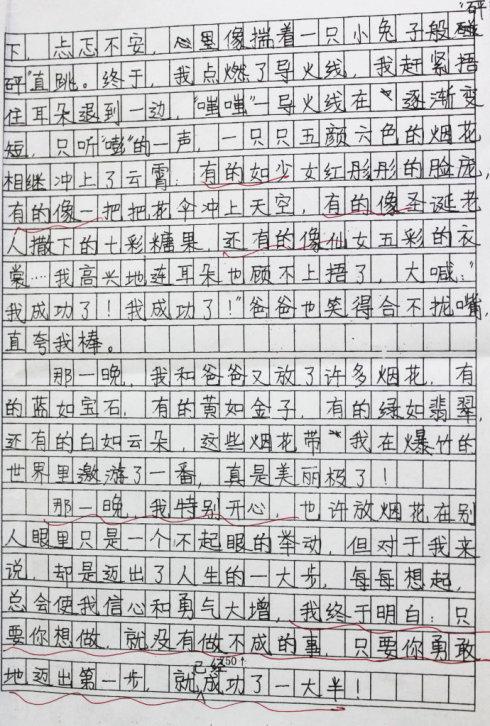 “砰
下，忐忑不安，心里像揣着一只小兔子般碰
砰”直跳。终于，我点燃了导火线，我赶紧捂
住耳朵退到一边，“嗤嗤”导火线在逐渐变
短，只听“嘭”的一声，一只只五颜六色的烟花
相继冲上了云霄：有的如少女红彤彤的脸庞，
有的像一把把花伞冲上天空，有的像圣诞老
人撒下的七彩糖果，还有的像仙女五彩的衣
裳……我高兴地连耳朵也顾不上捂了，大喊：“
我成功了！我成功了！”爸爸也笑得合不拢嘴，
直夸我棒。
那一晚，我和爸爸又放了许多烟花，有
的蓝如宝石，有的黄如金子，有的绿如翡翠，
还有的白如云朵，这些烟花带我在爆竹的
世界里遨游了一番，真是美丽极了！
那一晚，我特别开心，也许放烟花在别
人眼里只是一个不起眼的举动，但对于我来
说，却是迈出了人生的一大步，每每想起，
总会使我信心和勇气大增，我终于明白：只
要你想做，就没有做不成的事，只要你勇敢
已经 50↑
地迈出第一步，就成功了一大半！